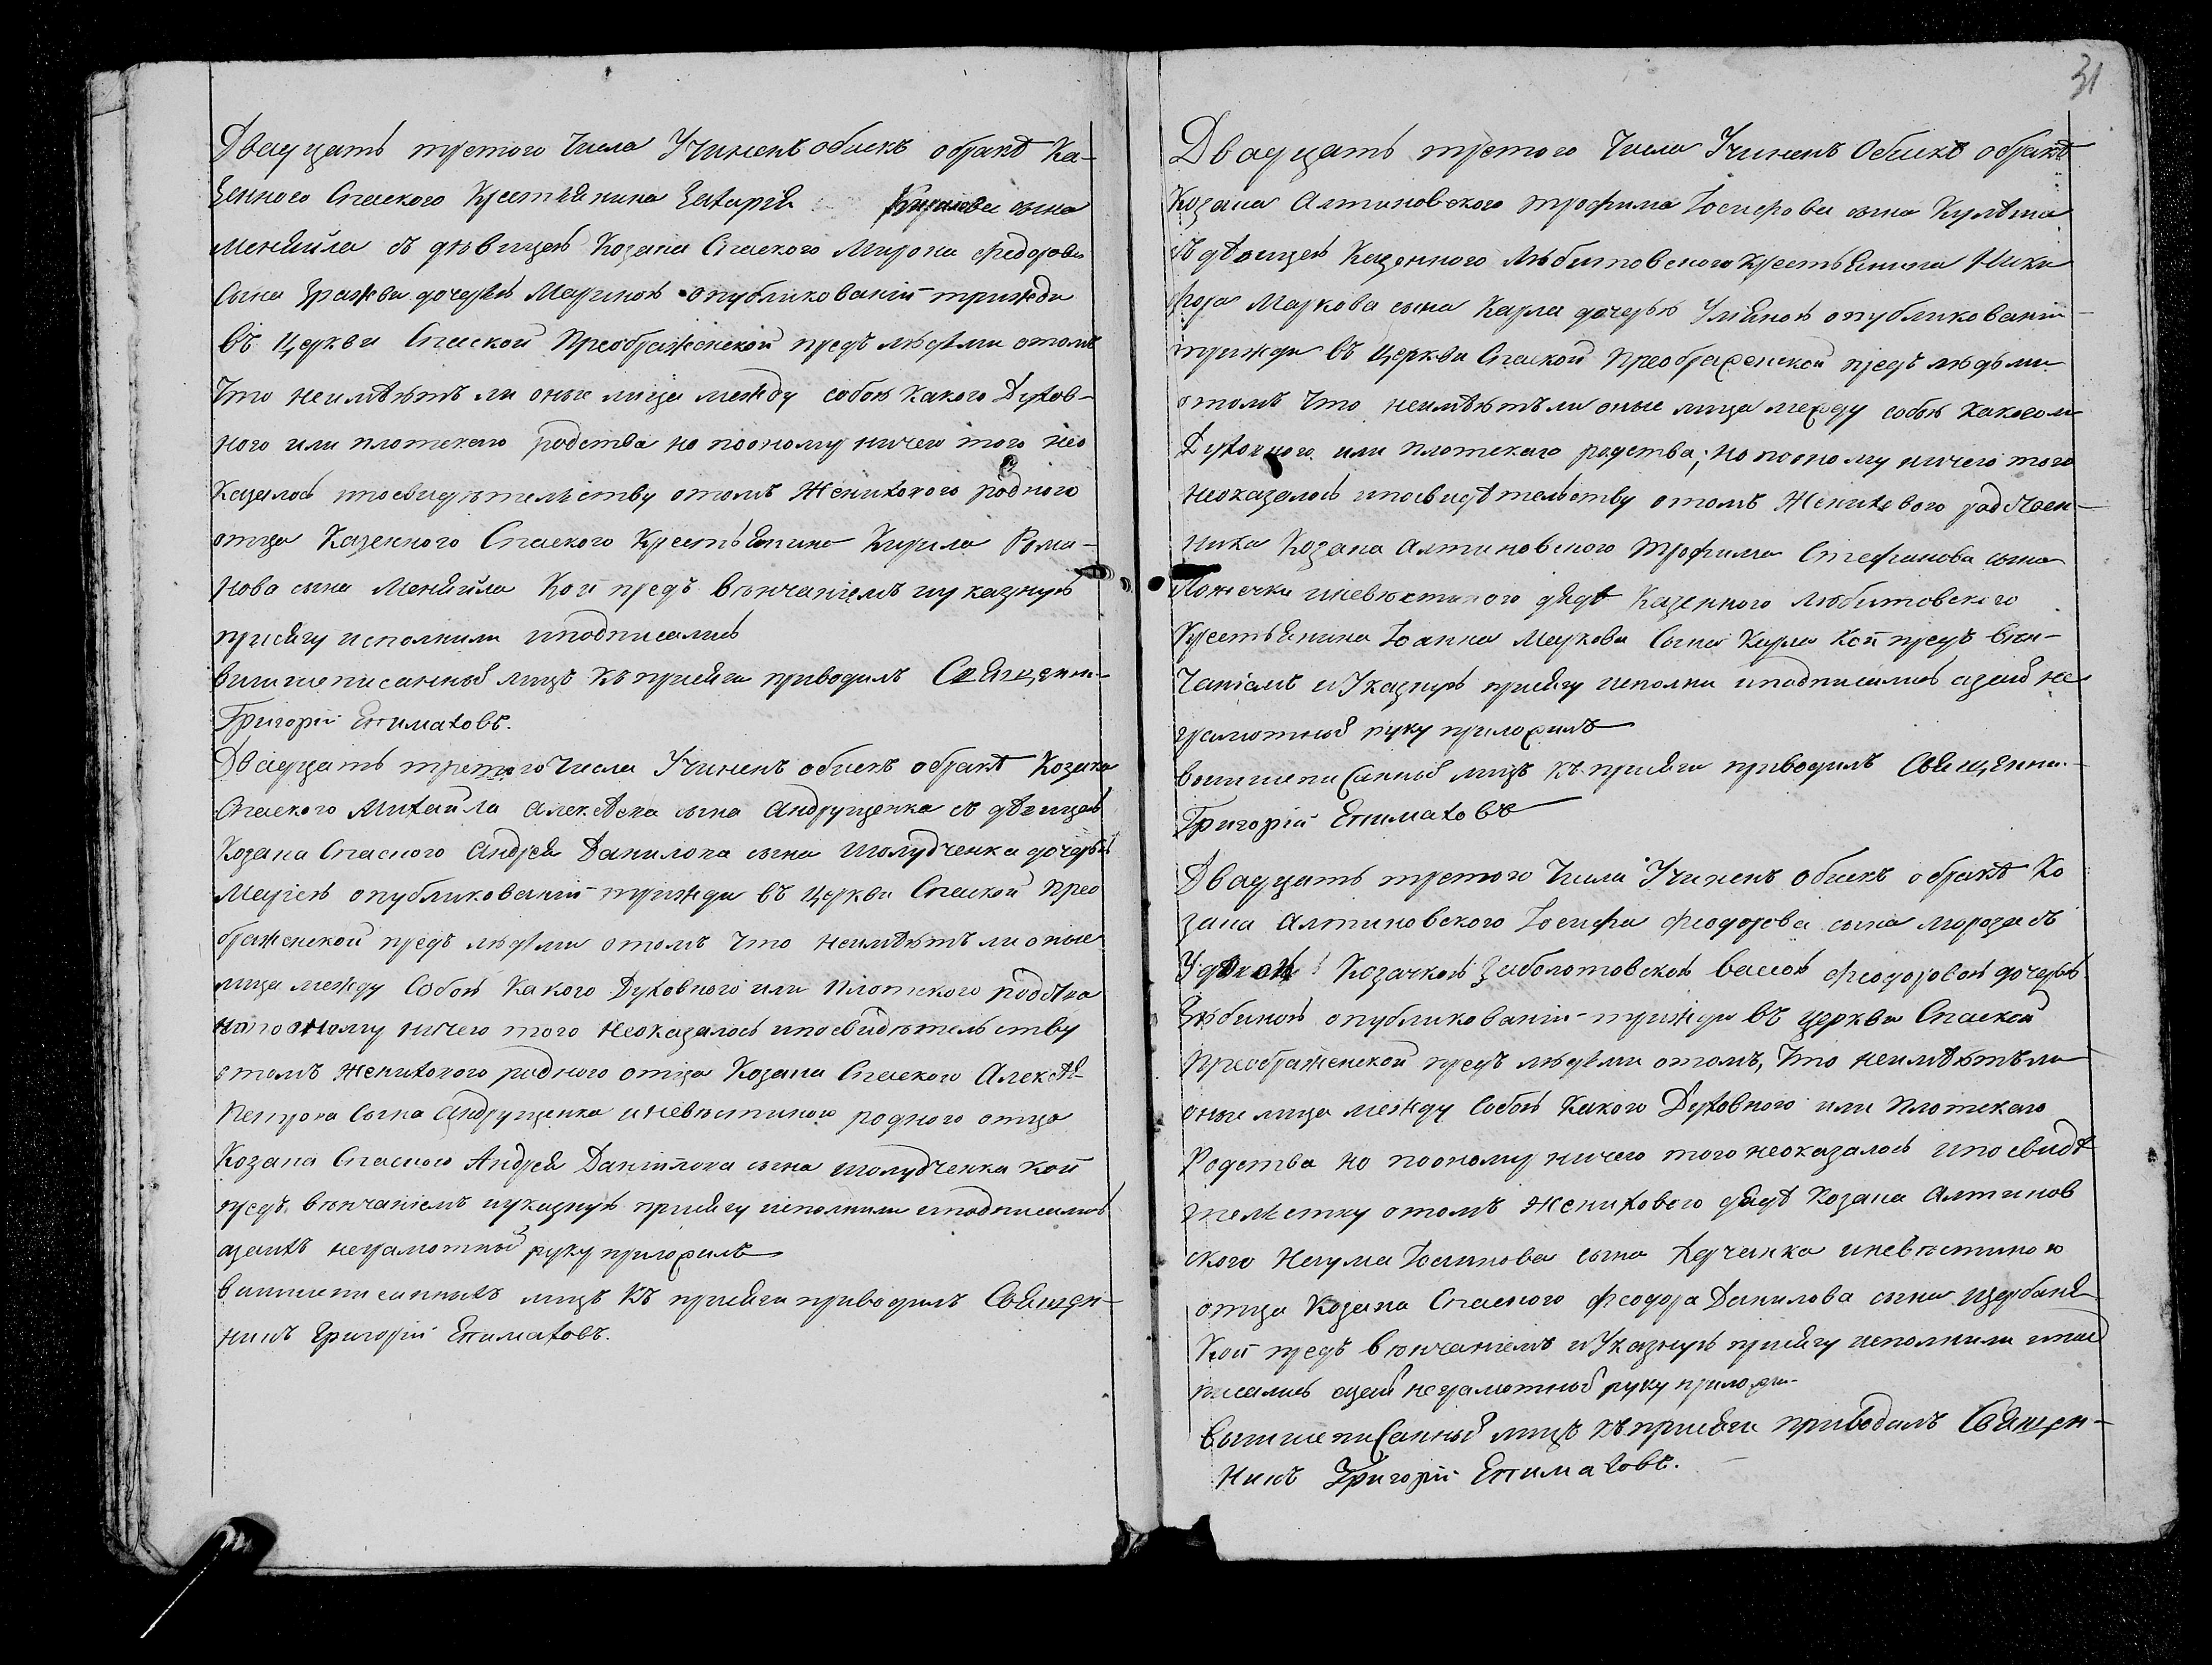 Двадцать третого Числа Учиненъ обискъ обракѣ Ка-
зенного Спаского Крестьянина Захарія Кирилова сына
Меняйла съ дѣвицею Козака Спаского Мирона Федорова
Сына дочерью Мариною опубликованіи трижди
Въ Церкви Спаской Преображенской предъ людьми отомъ
Что неимѣютъ ли оные лица между собою Какого Духов-
ного или плотскаго родства но поономУ ничего того нео
Казалось ипосвидѣтельству отомъ Женихового родного
отца Казенного Спаского Крестьянина Кирила Рома-
нова сына Меняйла Кои предъ вѣнчаніемъ иуказную
присягу исполнили иподписались
Вишеписанныхъ лицъ Къ присяги приводилъ Священни-
Григорій Епимаховъ.
Двадцать третого Числа Учиненъ обискъ обракѣ Козака
Спаского Михайла Алексѣева сына Андрущенка съ дѣвицею
Козака Спаского Андрея Данилова сына дочерью
Маріею опубликованіи трижди въ Церкви Спаской Прео
браженской предъ людьми отомъ Что неимѣютъ ли оные
лица между Собою Какого Духовного или Плотского родства
нопооному ничего того неоказалось ипосвидѣтельству
отомъ Женихового родного отца Козака Спаского Алексѣя
Петрова Сына Андрущенка иневѣстиного родного отца
Козака Спаского Андрея Данилова сына кои
предъ вѣнчаніемъ иуказную присягу исполнили иподписались
азаихъ неграмотныхъ руку приложилъ
Вишеписанныхъ лицъ Къ присяги приводилъ Священ-
никъ Григорій Епимаховъ.
31
Двадцать третого Числа Учиненъ Обискъ обракѣ
Козака Алтиновского Трофима Іосифова сына Кулѣша
съ дѣвицею Казенного Любитовского Крестьянина Ники
фора Маркова сына Карпа дочерью Уляною опубликованіи
трижди въ Церкви Спаской Преображенской предъ людьми
отомъ Что неимѣютъ ли оные лица между собою каковоли
Духовного или Плотскаго родства; но поономУ ничего того
неоказалось ипосвидѣтельству отомъ Женихового родствен-
ника Козака Алтиновского Трофима Стефанова сына
иневѣстиного дядѣ Казенного Любитовского
Крестьянина Іоанна Маркова Сына Карпа Кои предъ вѣн-
Чаніемъ и Указную присягу исполни иподписались азаихъ не
грамотныхъ руку приложилъ
Вышеписанныхъ лицъ къ присяги приводилъ Священни-
Григорій Епимаховъ
Двадцать третого Числа Учиненъ обискъ обракѣ Ко
зака Алтиновского Іосифа Феодорова сына Мороза съ
Удовою Козачкою Заболотовскою Васою Феодоровою дочерью
опубликованіи трижди Въ церкви Спаской
Преображенской предъ людьми отомъ, Что неимѣютъ ли
оные лица между Собою Какого Духовного или Плотскаго
Родства но поономУ ничего того неоказалось ипосвидѣ
тельству отомъ Женихового дядѣ Козака Алтинов
ского Наума сына иневѣстиного
отца Козака Спаского Феодора Данилова сына
Кои предъ вѣнчаніемъ и Указную присягу исполнили ипод
писались азаихъ неграмотныхъ руку приложи-
Вышеписанныхъ лицъ къ присяги приводилъ Священ-
Никъ Григорій Епимаховъ.